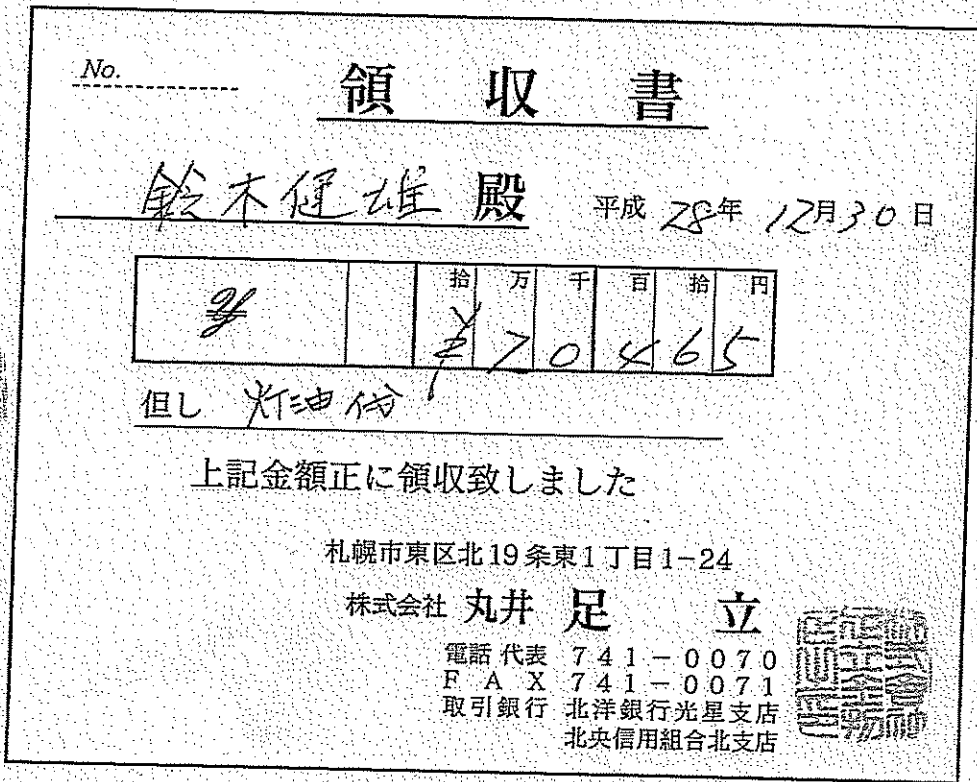 No.
領収書
鈴木健雄 殿 平成 28年 12月30日
拾 万 千 百 拾 円
¥ 7 0 4 6 5
但し 灯油代
上記金額正に領収致しました
札幌市東区北19条東1丁目1-24
株式会社 丸井 足立
電話 代表 741-0070
FAX 741-0071
取引銀行 北洋銀行光星支店
北央信用組合北支店